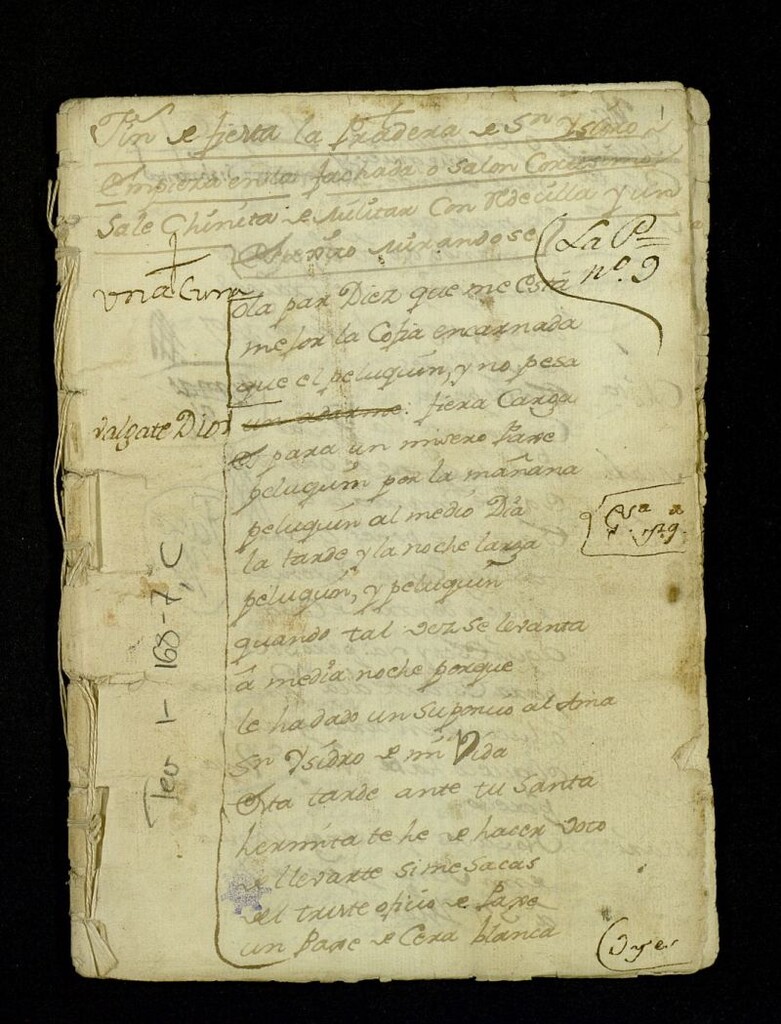 Sn de fiesta la Pradera de Sn Ysidro
Empieza en la fachada o Salon Cortisimo
Sale Chinita de Militar Con Redecilla y un
mirandose
La Pa
nº. 9
una Cura
ola par Diez que me està
mejor la Cofia encarnada
que el peluquin, y no pesa
valgate Dios
un adarme: fiera Carga
es para un misero Paxe
peluquin por la mañana
peluquin al medio Dia
la tarde y la noche larga
peluquin, y peluquin
quando tal vez se levanta
â media noche porque
le ha dado un Suponcio al Ama
Sn Ysidro de mi Vida
Esta tarde ante tu Santa
hermita te he de hacer voto
de llevarte si me sacas
del triste oficio de Paxe
un Paxe de Cera blanca
Tea 1-168-7, C